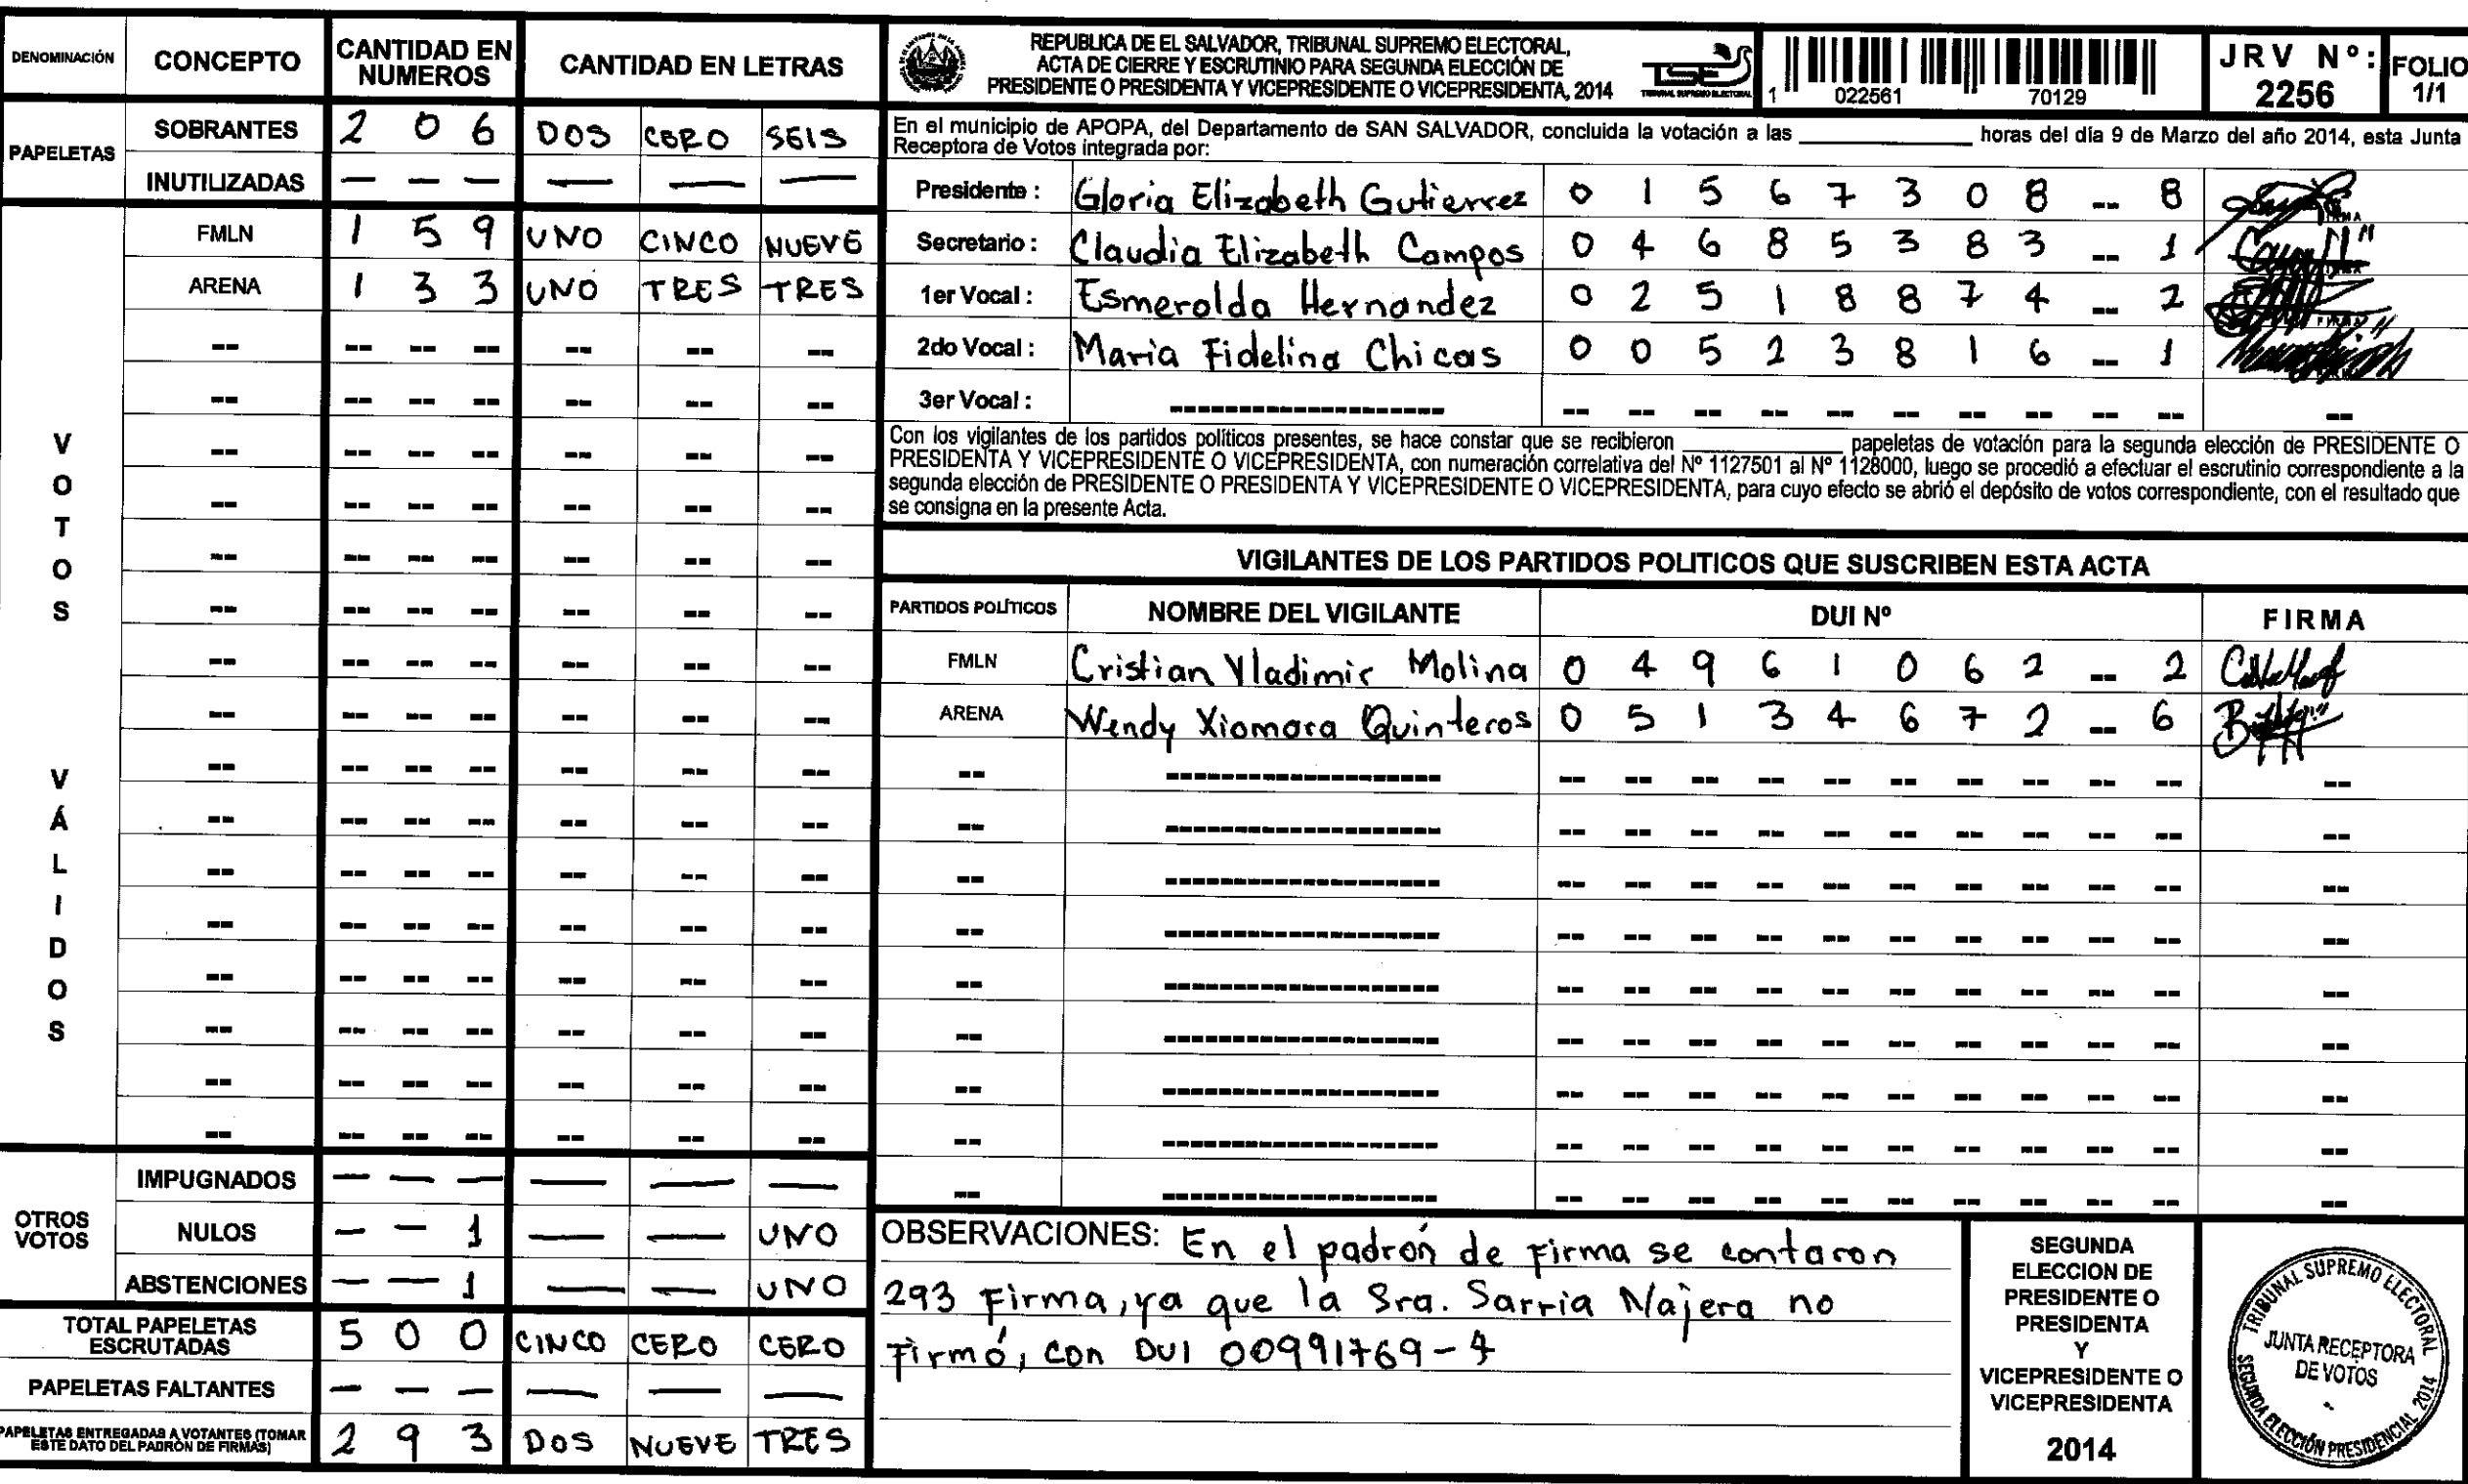 DENOMINACIÓN CONCEPTO CANTIDAD EN NUMEROS CANTIDAD EN LETRAS
PAPELETAS
SOBRANTES 2 0 6 DOS CERO SEIS
INUTILIZADAS — — — — — —
VOTOS VÁLIDOS
FMLN 1 5 9 UNO CINCO NUEVE
ARENA 1 3 3 UNO TRES TRES
OTROS VOTOS
IMPUGNADOS — — — — — —
NULOS — — 1 — — UNO
ABSTENCIONES — — 1 — — UNO
TOTAL PAPELETAS ESCRUTADAS 5 0 0 CINCO CERO CERO
PAPELETAS FALTANTES — — — — — —
PAPELETAS ENTREGADAS A VOTANTES (TOMAR ESTE DATO DEL PADRÓN DE FIRMAS) 2 9 3 DOS NUEVE TRES
REPUBLICA DE EL SALVADOR, TRIBUNAL SUPREMO ELECTORAL,
ACTA DE CIERRE Y ESCRUTINIO PARA SEGUNDA ELECCIÓN DE
PRESIDENTE O PRESIDENTA Y VICEPRESIDENTE O VICEPRESIDENTA, 2014
TSE
TRIBUNAL SUPREMO ELECTORAL
1 022561 70129
JRV Nº: 2256
FOLIO 1/1
En el municipio de APOPA, del Departamento de SAN SALVADOR, concluida la votación a las ________ horas del día 9 de Marzo del año 2014, esta Junta
Receptora de Votos integrada por:
Presidente : Gloria Elizabeth Gutierrez 0 1 5 6 7 3 0 8 -- 8
Secretario : Claudia Elizabeth Campos 0 4 6 8 5 3 8 3 -- 1
1er Vocal : Esmerolda Hernandez 0 2 5 1 8 8 7 4 -- 2
2do Vocal : Maria Fidelina Chicas 0 0 5 2 3 8 1 6 -- 1
3er Vocal :
Con los vigilantes de los partidos políticos presentes, se hace constar que se recibieron ________ papeletas de votación para la segunda elección de PRESIDENTE O
PRESIDENTA Y VICEPRESIDENTE O VICEPRESIDENTA, con numeración correlativa del Nº 1127501 al Nº 1128000, luego se procedió a efectuar el escrutinio correspondiente a la
segunda elección de PRESIDENTE O PRESIDENTA Y VICEPRESIDENTE O VICEPRESIDENTA, para cuyo efecto se abrió el depósito de votos correspondiente, con el resultado que
se consigna en la presente Acta.
VIGILANTES DE LOS PARTIDOS POLITICOS QUE SUSCRIBEN ESTA ACTA
PARTIDOS POLÍTICOS NOMBRE DEL VIGILANTE DUI Nº FIRMA
FMLN Cristian Vladimir Molina 0 4 9 6 1 0 6 2 -- 2
ARENA Wendy Xiomara Quinteros 0 5 1 3 4 6 7 2 -- 6
OBSERVACIONES: En el padrón de firma se contaron
293 Firma, ya que la Sra. Sarria Najera no
Firmó, con DUI 00991769-4
SEGUNDA
ELECCION DE
PRESIDENTE O
PRESIDENTA
Y
VICEPRESIDENTE O
VICEPRESIDENTA
2014
TRIBUNAL SUPREMO ELECTORAL
JUNTA RECEPTORA
DE VOTOS
SEGUNDA ELECCIÓN PRESIDENCIAL 2014